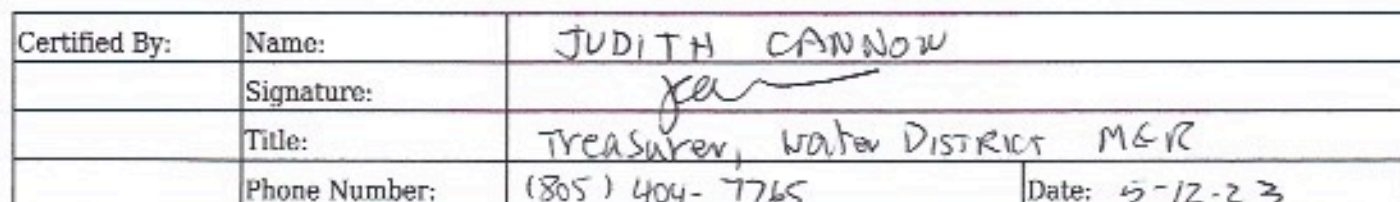 Certified By: Name: JUDITH CANNON
Signature:
Title: Treasurer, Water DISTRICT MGR
Phone Number: (805) 404-7765 Date: 5-12-23